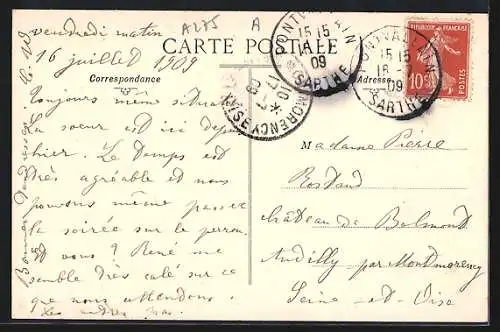 vendredi matin
A275
A
16 juillet 1909
CARTE POSTALE
Correspondance
Adresse
PONTVALLAIN
15 15
16 -
09
SARTHE
PONTVALLAIN
15 15
16 -
09
SARTHE
MONTMORENCY
17 -7
09
OISE
RÉPUBLIQUE FRANÇAISE
10
POSTES
Toujours même situation
La soeur est ici depuis
hier. Le temps est
très agréable et nous
pouvons même passer
la soirée sur le perron.
et vous ? René me
semble très calé sur ce
que nous attendons.
Les autres
Bonnes tendresses
Madame Pierre
Rostand
château de Belmont
Andilly par Montmorency
Seine-et-Oise